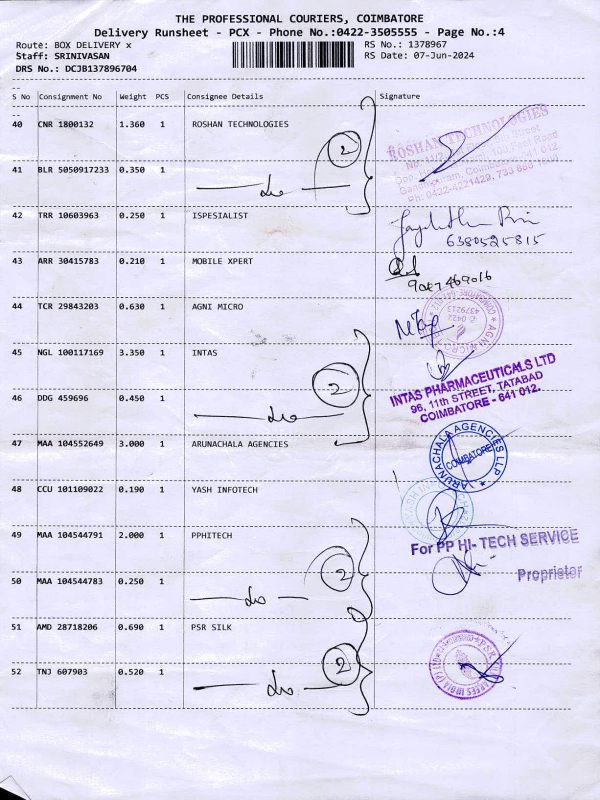 THE PROFESSIONAL COURIERS, COIMBATORE
Delivery Runsheet - PCX - Phone No.:0422-3505555 - Page No.:4
Route: BOX DELIVERY x RS No.: 1378967
Staff: SRINIVASAN RS Date: 07-Jun-2024
DRS No.: DCJB137896704
S No Consignment No Weight PCS Consignee Details Signature
40 CNR 1800132 1.360 1 ROSHAN TECHNOLOGIES
2
ROSHAN TECHNOLOGIES
41 BLR 5050917233 0.350 1
do
42 TRR 10603963 0.250 1 ISPESIALIST
6380525815
43 ARR 30415783 0.210 1 MOBILE XPERT
9047469016
44 TCR 29843203 0.630 1 AGNI MICRO
45 NGL 100117169 3.350 1 INTAS
2
INTAS PHARMACEUTICALS LTD
96, 11th STREET, TATABAD
COIMBATORE - 641 012.
46 DDG 459696 0.450 1
do
47 MAA 104552649 3.000 1 ARUNACHALA AGENCIES
ARUNACHALA AGENCIES LLP
COIMBATORE
48 CCU 101109022 0.190 1 YASH INFOTECH
49 MAA 104544791 2.000 1 PPHITECH
For PP HI- TECH SERVICE
2
Proprietor
50 MAA 104544783 0.250 1
do
51 AMD 28718206 0.690 1 PSR SILK
2
52 TNJ 607903 0.520 1
do